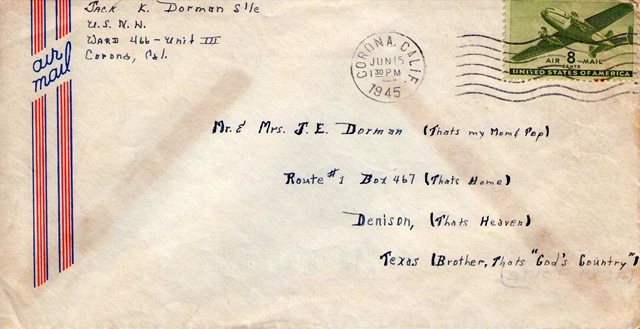 Jack K. Dorman S1/c
U.S.N.H.
Ward 466 - Unit III
Corona, Cal.
air mail
CORONA, CALIF.
JUN 15
1 30 PM
1945
AIR 8 MAIL
CENTS
UNITED STATES OF AMERICA
Mr. & Mrs. J. E. Dorman (Thats my Mom & Pop)
Route #1 Box 467 (Thats Home)
Denison, (Thats Heaven)
Texas (Brother, Thats "God's Country")